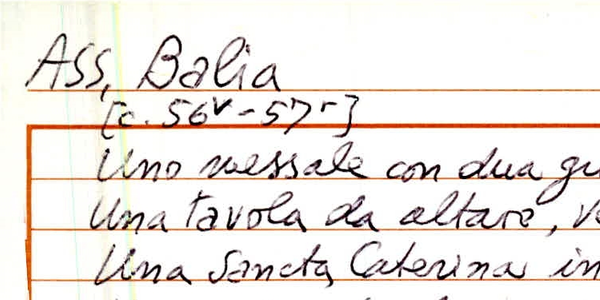 Ass, Balia
[c. 56v-57r]
Uno messale con dua gu
Una tavola da altare, ve
Una Sancta Caterina in